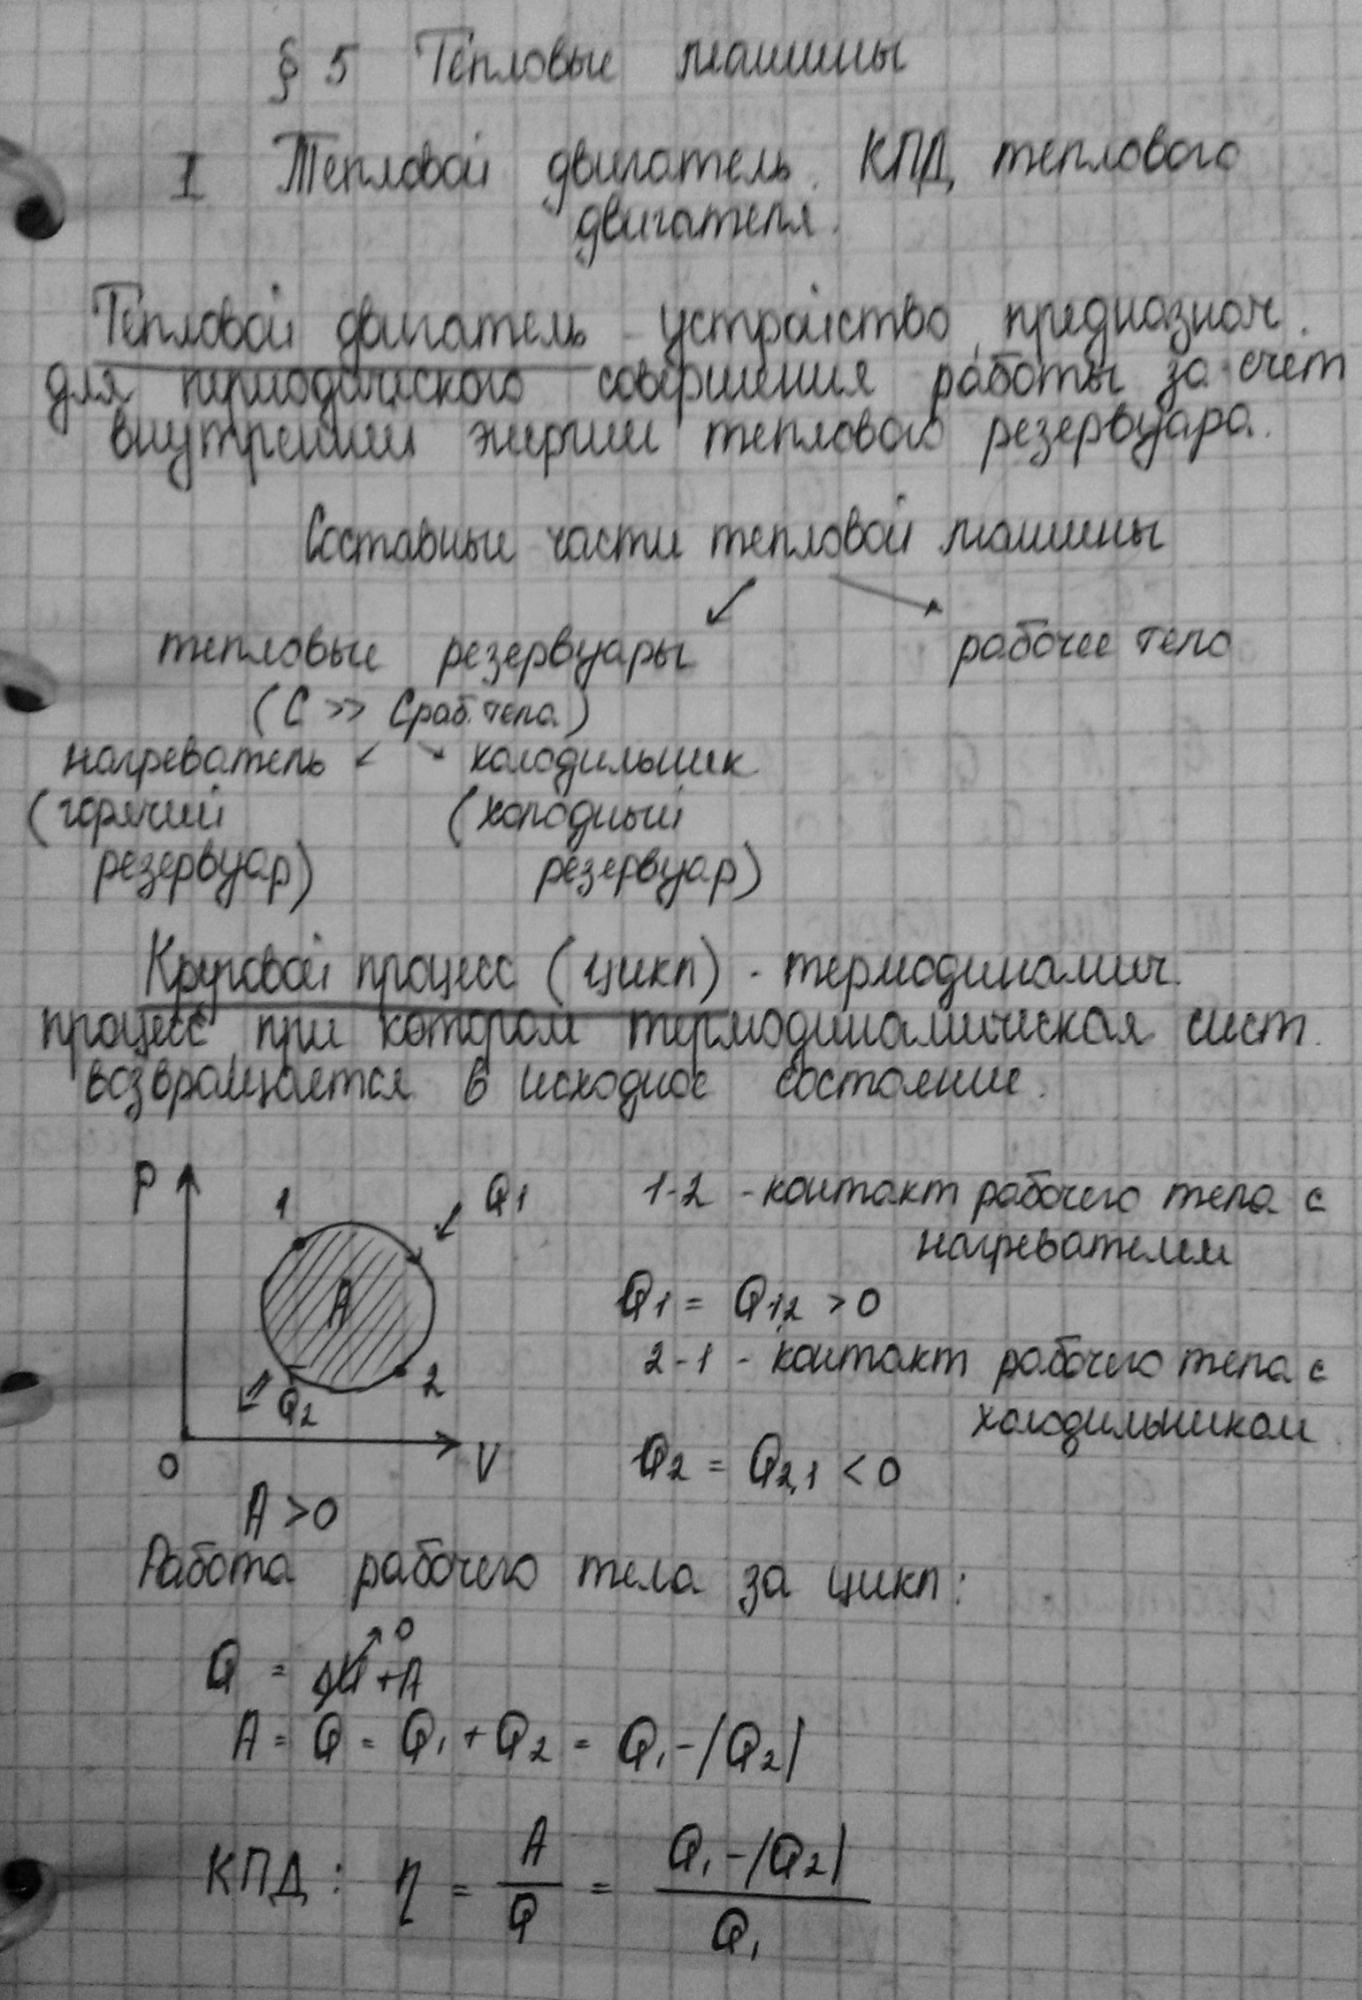 § 5 Тепловые машины
I Тепловой двигатель. КПД теплового
двигателя.
Тепловой двигатель - устройство, предназнач.
для периодического совершения работы за счёт
внутренней энергии теплового резервуара.
Составные части тепловой машины
тепловые резервуары
рабочее тело
(C >> Cраб. тела)
нагреватель
холодильник
(горячий
резервуар)
(холодный
резервуар)
Круговой процесс (цикл) - термодинамич.
процесс, при котором термодинамическая сист.
возвращается в исходное состояние.
P
1
Q1
A
2
Q2
0
V
A > 0
1-2 - контакт рабочего тела с
нагревателем
Q1 = Q1,2 > 0
2-1 - контакт рабочего тела с
холодильником
Q2 = Q2,1 < 0
Работа рабочего тела за цикл:
0
Q = ΔU + A
A = Q = Q1 + Q2 = Q1 - |Q2|
КПД: η = A/Q = (Q1 - |Q2|)/Q1